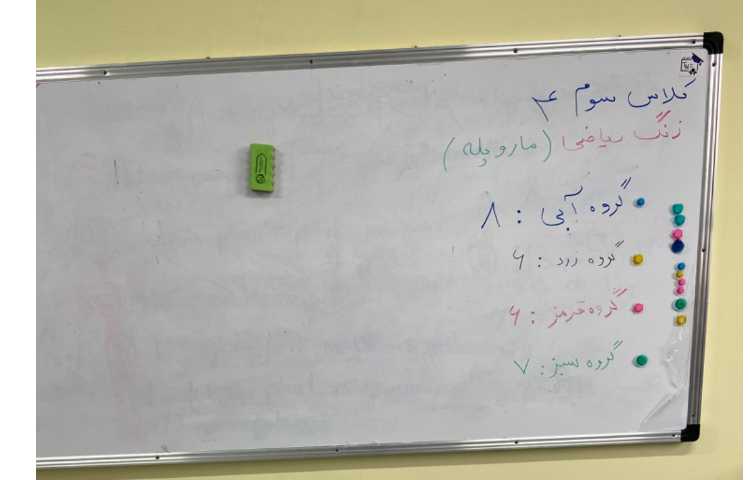 کلاس سوم ۴
زنگ ریاضی (مار و پله)
گروه آبی : ۸
گروه زرد : ۶
گروه قرمز : ۶
گروه سبز : ۷